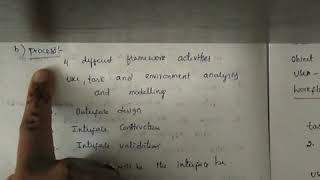 b) process:-
4 different framework activities
user, task and environment analysis
and modelling
Interface design
Interface Construction
Interface validation
will be the interface be
Object
user -
workflo
task
2.
us